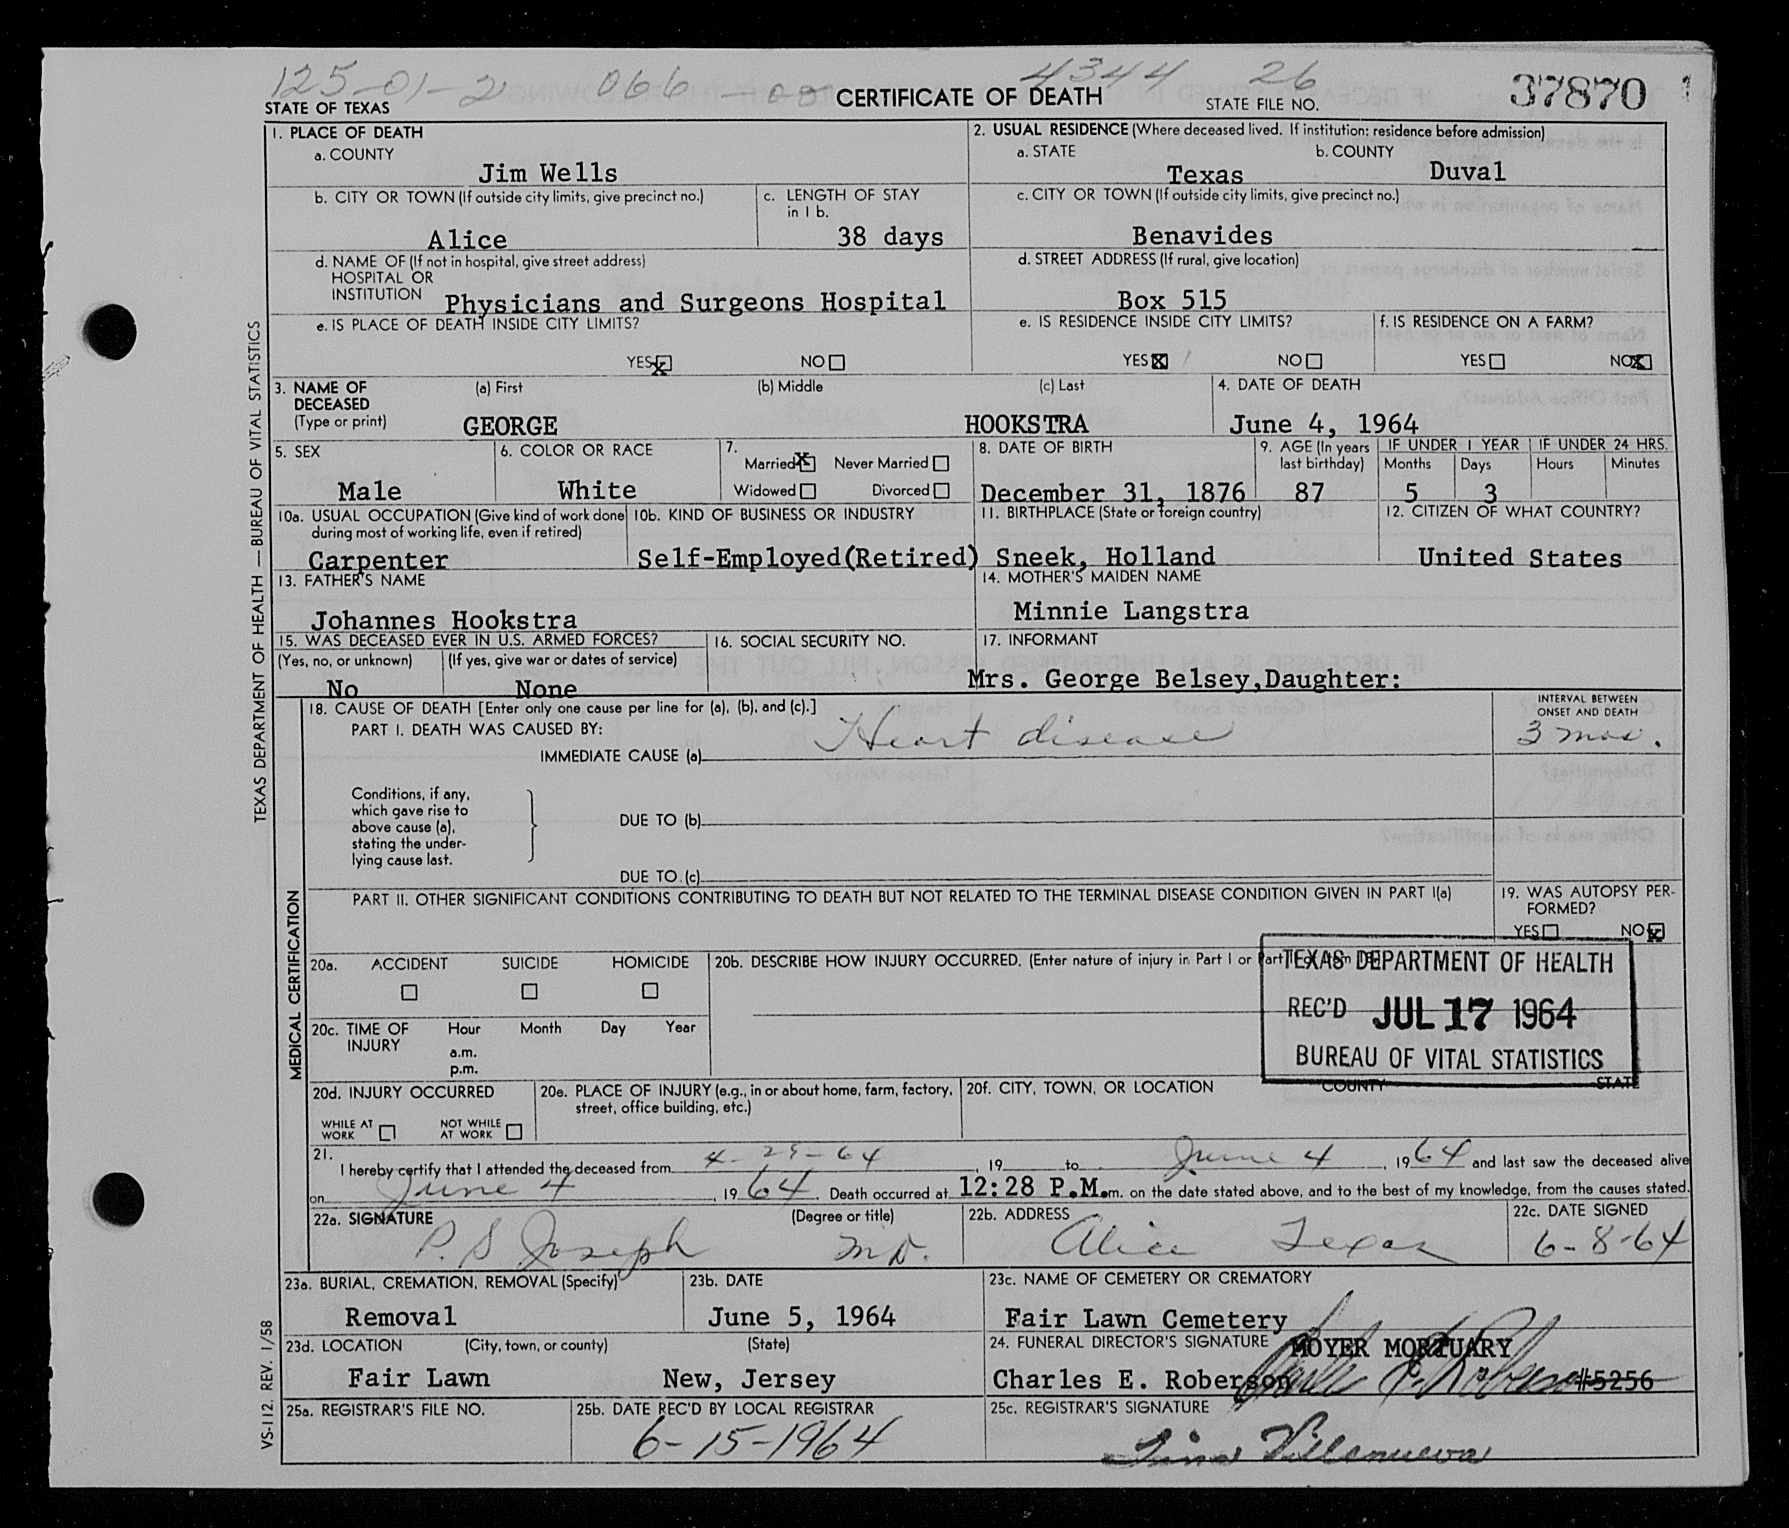 125-01-2 066 -00 4344 26
STATE OF TEXAS CERTIFICATE OF DEATH STATE FILE NO. 37870
1. PLACE OF DEATH
a. COUNTY
Jim Wells
2. USUAL RESIDENCE (Where deceased lived. If institution: residence before admission)
a. STATE b. COUNTY
Texas Duval
b. CITY OR TOWN (If outside city limits, give precinct no.)
Alice
c. LENGTH OF STAY
in 1 b.
38 days
c. CITY OR TOWN (If outside city limits, give precinct no.)
Benavides
d. NAME OF (If not in hospital, give street address)
HOSPITAL OR
INSTITUTION Physicians and Surgeons Hospital
d. STREET ADDRESS (If rural, give location)
Box 515
e. IS PLACE OF DEATH INSIDE CITY LIMITS?
YES X NO
e. IS RESIDENCE INSIDE CITY LIMITS?
YES X NO
f. IS RESIDENCE ON A FARM?
YES NO X
3. NAME OF
DECEASED
(Type or print)
(a) First (b) Middle (c) Last
GEORGE HOOKSTRA
4. DATE OF DEATH
June 4, 1964
5. SEX
Male
6. COLOR OR RACE
White
7.
Married X Never Married
Widowed Divorced
8. DATE OF BIRTH
December 31, 1876
9. AGE (In years
last birthday)
87
IF UNDER 1 YEAR IF UNDER 24 HRS.
Months Days Hours Minutes
5 3
10a. USUAL OCCUPATION (Give kind of work done
during most of working life, even if retired)
Carpenter
10b. KIND OF BUSINESS OR INDUSTRY
Self-Employed(Retired)
11. BIRTHPLACE (State or foreign country)
Sneek, Holland
12. CITIZEN OF WHAT COUNTRY?
United States
13. FATHER'S NAME
Johannes Hookstra
14. MOTHER'S MAIDEN NAME
Minnie Langstra
15. WAS DECEASED EVER IN U.S. ARMED FORCES?
(Yes, no, or unknown) (If yes, give war or dates of service)
No None
16. SOCIAL SECURITY NO.
17. INFORMANT
Mrs. George Belsey,Daughter:
18. CAUSE OF DEATH [Enter only one cause per line for (a), (b), and (c).]
PART I. DEATH WAS CAUSED BY:
IMMEDIATE CAUSE (a) Heart disease
INTERVAL BETWEEN
ONSET AND DEATH
3 mos.
Conditions, if any,
which gave rise to
above cause (a),
stating the under-
lying cause last.
DUE TO (b)
DUE TO (c)
PART II. OTHER SIGNIFICANT CONDITIONS CONTRIBUTING TO DEATH BUT NOT RELATED TO THE TERMINAL DISEASE CONDITION GIVEN IN PART I(a)
19. WAS AUTOPSY PER-
FORMED?
YES NO X
20a. ACCIDENT SUICIDE HOMICIDE
20b. DESCRIBE HOW INJURY OCCURRED. (Enter nature of injury in Part I or Part
TEXAS DEPARTMENT OF HEALTH
REC'D JUL 17 1964
BUREAU OF VITAL STATISTICS
20c. TIME OF
INJURY
Hour Month Day Year
a.m.
p.m.
20d. INJURY OCCURRED
WHILE AT
WORK
NOT WHILE
AT WORK
20e. PLACE OF INJURY (e.g., in or about home, farm, factory,
street, office building, etc.)
20f. CITY, TOWN, OR LOCATION COUNTY STATE
21.
I hereby certify that I attended the deceased from 4-29-64, 19 to June 4, 1964 and last saw the deceased alive
on June 4, 1964. Death occurred at 12:28 P.M. m. on the date stated above, and to the best of my knowledge, from the causes stated.
22a. SIGNATURE (Degree or title)
P. S Joseph M.D.
22b. ADDRESS
Alice Texas
22c. DATE SIGNED
6-8-64
23a. BURIAL, CREMATION, REMOVAL (Specify)
Removal
23b. DATE
June 5, 1964
23c. NAME OF CEMETERY OR CREMATORY
Fair Lawn Cemetery
23d. LOCATION (City, town, or county) (State)
Fair Lawn New, Jersey
24. FUNERAL DIRECTOR'S SIGNATURE MOYER MORTUARY
Charles E. Roberson #5256
25a. REGISTRAR'S FILE NO.
25b. DATE REC'D BY LOCAL REGISTRAR
6-15-1964
25c. REGISTRAR'S SIGNATURE
Villanueva
TEXAS DEPARTMENT OF HEALTH — BUREAU OF VITAL STATISTICS
MEDICAL CERTIFICATION
VS-112. REV. 1/58